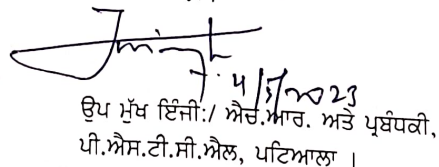 4/5/2023
ਉਪ ਮੁੱਖ ਇੰਜੀ:/ ਐਚ.ਆਰ. ਅਤੇ ਪ੍ਰਬੰਧਕੀ,
ਪੀ.ਐਸ.ਟੀ.ਸੀ.ਐਲ, ਪਟਿਆਲਾ ।